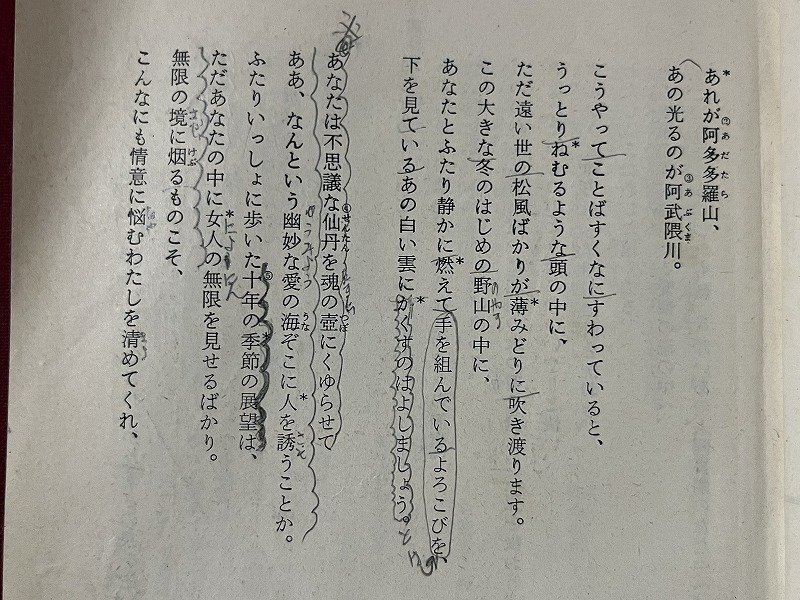 あれが阿多多羅山、
あの光るのが阿武隈川。
こうやってことばすくなにすわっていると、
うっとりねむるような頭の中に、
ただ遠い世の松風ばかりが薄みどりに吹き渡ります。
この大きな冬のはじめの野山の中に、
あなたとふたり静かに燃えて手を組んでいるよろこびを、
下を見ているあの白い雲にかくすのはよしましょう。
あなたは不思議な仙丹を魂の壺にくゆらせて
ああ、なんという幽妙な愛の海ぞこに人を誘うことか。
ふたりいっしょに歩いた十年の季節の展望は、
ただあなたの中に女人の無限を見せるばかり。
無限の境に烟るものこそ、
こんなにも情意に悩むわたしを清めてくれ、